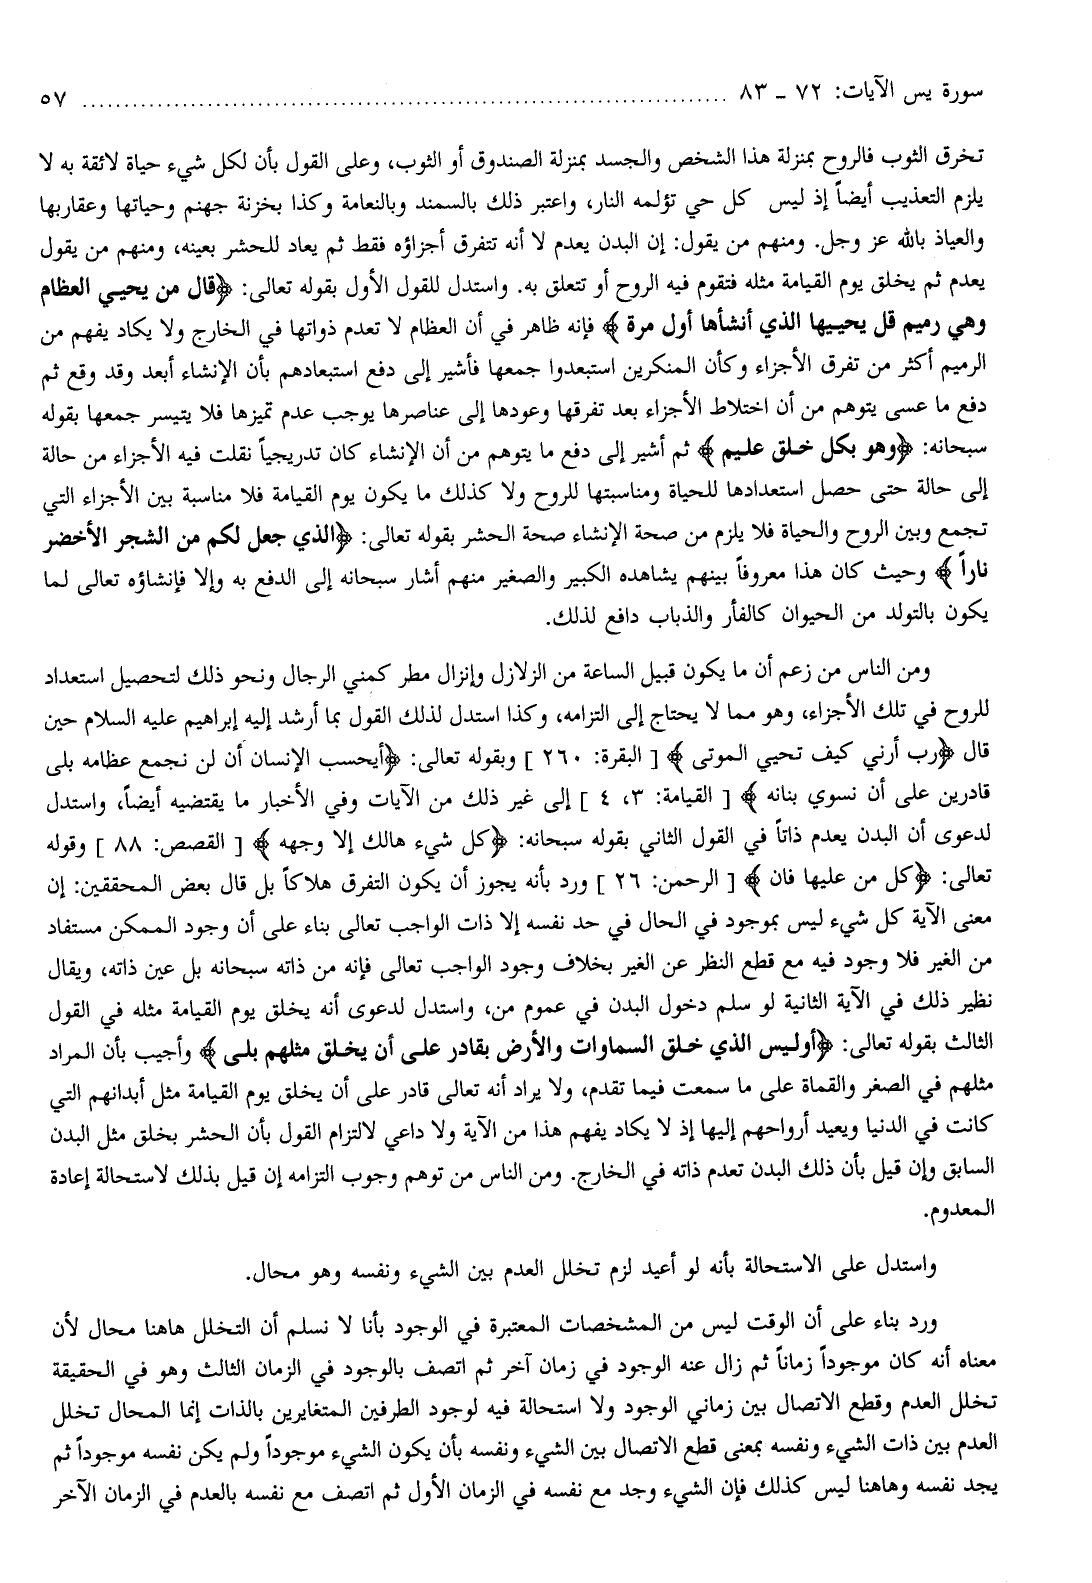 سورة يس الآيات: ٧٢ ـ ٨٣ ........................................................................ ٥٧
تخرق الثوب فالروح بمنزلة هذا الشخص والجسد بمنزلة الصندوق أو الثوب، وعلى القول بأن لكل شيء حياة لائقة به لا
يلزم التعذيب أيضاً إذ ليس كل حي تؤلمه النار، واعتبر ذلك بالسمند وبالنعامة وكذا بخزنة جهنم وحياتها وعقاربها
والعياذ بالله عز وجل. ومنهم من يقول: إن البدن يعدم لا أنه تتفرق أجزاؤه فقط ثم يعاد للحشر بعينه، ومنهم من يقول
يعدم ثم يخلق يوم القيامة مثله فتقوم فيه الروح أو تتعلق به. واستدل للقول الأول بقوله تعالى: ﴿قال من يحيـي العظام
وهي رميم قل يحييها الذي أنشأها أول مرة﴾ فإنه ظاهر في أن العظام لا تعدم ذواتها في الخارج ولا يكاد يفهم من
الرميم أكثر من تفرق الأجزاء وكأن المنكرين استبعدوا جمعها فأشير إلى دفع استبعادهم بأن الإنشاء أبعد وقد وقع ثم
دفع ما عسى يتوهم من أن اختلاط الأجزاء بعد تفرقها وعودها إلى عناصرها يوجب عدم تميزها فلا يتيسر جمعها بقوله
سبحانه: ﴿وهو بكل خلق عليم﴾ ثم أشير إلى دفع ما يتوهم من أن الإنشاء كان تدريجياً نقلت فيه الأجزاء من حالة
إلى حالة حتى حصل استعدادها للحياة ومناسبتها للروح ولا كذلك ما يكون يوم القيامة فلا مناسبة بين الأجزاء التي
تجمع وبين الروح والحياة فلا يلزم من صحة الإنشاء صحة الحشر بقوله تعالى: ﴿الذي جعل لكم من الشجر الأخضر
ناراً﴾ وحيث كان هذا معروفاً بينهم يشاهده الكبير والصغير منهم أشار سبحانه إلى الدفع به وإلا فإنشاؤه تعالى لما
يكون بالتولد من الحيوان كالفأر والذباب دافع لذلك.
ومن الناس من زعم أن ما يكون قبيل الساعة من الزلازل وإنزال مطر كمني الرجال ونحو ذلك لتحصيل استعداد
للروح في تلك الأجزاء، وهو مما لا يحتاج إلى التزامه، وكذا استدل لذلك القول بما أرشد إليه إبراهيم عليه السلام حين
قال ﴿رب أرني كيف تحيي الموتى﴾ [البقرة: ٢٦٠] وبقوله تعالى: ﴿أيحسب الإنسان أن لن نجمع عظامه بلى
قادرين على أن نسوي بنانه﴾ [القيامة: ٣، ٤] إلى غير ذلك من الآيات وفي الأخبار ما يقتضيه أيضاً، واستدل
لدعوى أن البدن يعدم ذاتاً في القول الثاني بقوله سبحانه: ﴿كل شيء هالك إلا وجهه﴾ [القصص: ٨٨] وقوله
تعالى: ﴿كل من عليها فان﴾ [الرحمن: ٢٦] ورد بأنه يجوز أن يكون التفرق هلاكاً بل قال بعض المحققين: إن
معنى الآية كل شيء ليس بموجود في الحال في حد نفسه إلا ذات الواجب تعالى بناء على أن وجود الممكن مستفاد
من الغير فلا وجود فيه مع قطع النظر عن الغير بخلاف وجود الواجب تعالى فإنه من ذاته سبحانه بل عين ذاته، ويقال
نظير ذلك في الآية الثانية لو سلم دخول البدن في عموم من، واستدل لدعوى أنه يخلق يوم القيامة مثله في القول
الثالث بقوله تعالى: ﴿أوليس الذي خلق السماوات والأرض بقادر على أن يخلق مثلهم بلى﴾ وأجيب بأن المراد
مثلهم في الصغر والقماة على ما سمعت فيما تقدم، ولا يراد أنه تعالى قادر على أن يخلق يوم القيامة مثل أبدانهم التي
كانت في الدنيا ويعيد أرواحهم إليها إذ لا يكاد يفهم هذا من الآية ولا داعي لالتزام القول بأن الحشر بخلق مثل البدن
السابق وإن قيل بأن ذلك البدن تعدم ذاته في الخارج. ومن الناس من توهم وجوب التزامه إن قيل بذلك لاستحالة إعادة
المعدوم.
واستدل على الاستحالة بأنه لو أعيد لزم تخلل العدم بين الشيء ونفسه وهو محال.
ورد بناء على أن الوقت ليس من المشخصات المعتبرة في الوجود بأنا لا نسلم أن التخلل هاهنا محال لأن
معناه أنه كان موجوداً زماناً ثم زال عنه الوجود في زمان آخر ثم اتصف بالوجود في الزمان الثالث وهو في الحقيقة
تخلل العدم وقطع الاتصال بين زماني الوجود ولا استحالة فيه لوجود الطرفين المتغايرين بالذات إنما المحال تخلل
العدم بين ذات الشيء ونفسه بمعنى قطع الاتصال بين الشيء ونفسه بأن يكون الشيء موجوداً ولم يكن نفسه موجوداً ثم
يجد نفسه وهاهنا ليس كذلك فإن الشيء وجد مع نفسه في الزمان الأول ثم اتصف مع نفسه بالعدم في الزمان الآخر